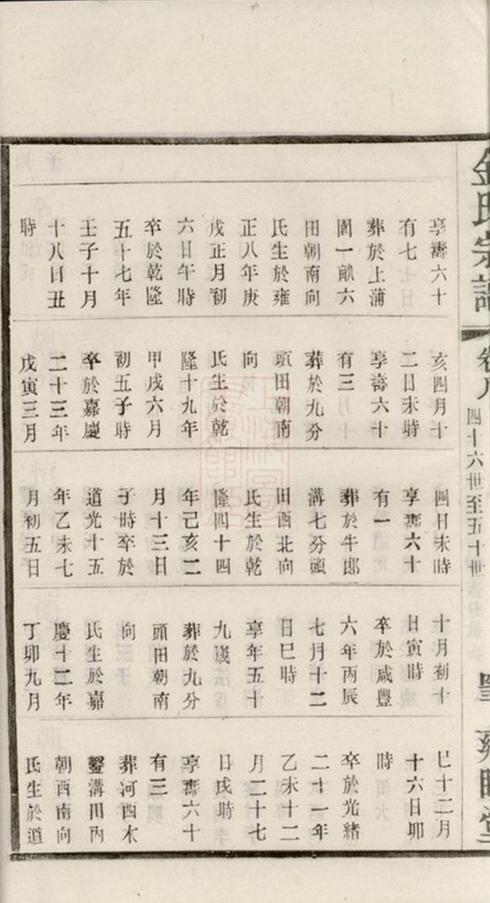 金氏宗譜
卷八
四十六世至五十世
雍睦堂
享壽六十
有七
葬於上蒲
閣一畝六
田朝南向
氏生於雍
正八年庚
戌正月初
六日午時
卒於乾隆
五十七年
壬子十月
十八日丑
時
亥四月十
二日未時
享壽六十
有三
葬於九分
頭田朝南
向
氏生於乾
隆十九年
甲戌六月
初五子時
卒於嘉慶
二十三年
戊寅三月
四日未時
享壽六十
有一
葬於牛郎
溝七分頭
田西北向
氏生於乾
隆四十四
年己亥二
月十三日
子時卒於
道光十五
年乙未七
月初五日
十月初十
日寅時
卒於咸豐
六年丙辰
七月十二
日巳時
享年五十
九歲
葬於九分
頭田朝南
向
氏生於嘉
慶十二年
丁卯九月
巳十二月
十六日卯
時
卒於光緒
二十一年
乙未十二
月二十七
日戌時
享壽六十
有三
葬河西木
鑿溝田內
朝西南向
氏生於道